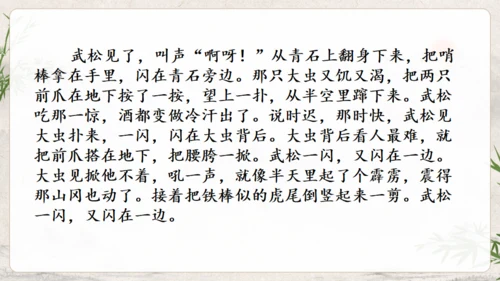 武松见了，叫声“啊呀！”从青石上翻身下来，把哨
棒拿在手里，闪在青石旁边。那只大虫又饥又渴，把两只
前爪在地下按了一按，望上一扑，从半空里蹿下来。武松
吃那一惊，酒都变做冷汗出了。说时迟，那时快，武松见
大虫扑来，一闪，闪在大虫背后。大虫背后看人最难，就
把前爪搭在地下，把腰胯一掀。武松一闪，又闪在一边。
大虫见掀他不着，吼一声，就像半天里起了个霹雳，震得
那山冈也动了。接着把铁棒似的虎尾倒竖起来一剪。武松
一闪，又闪在一边。